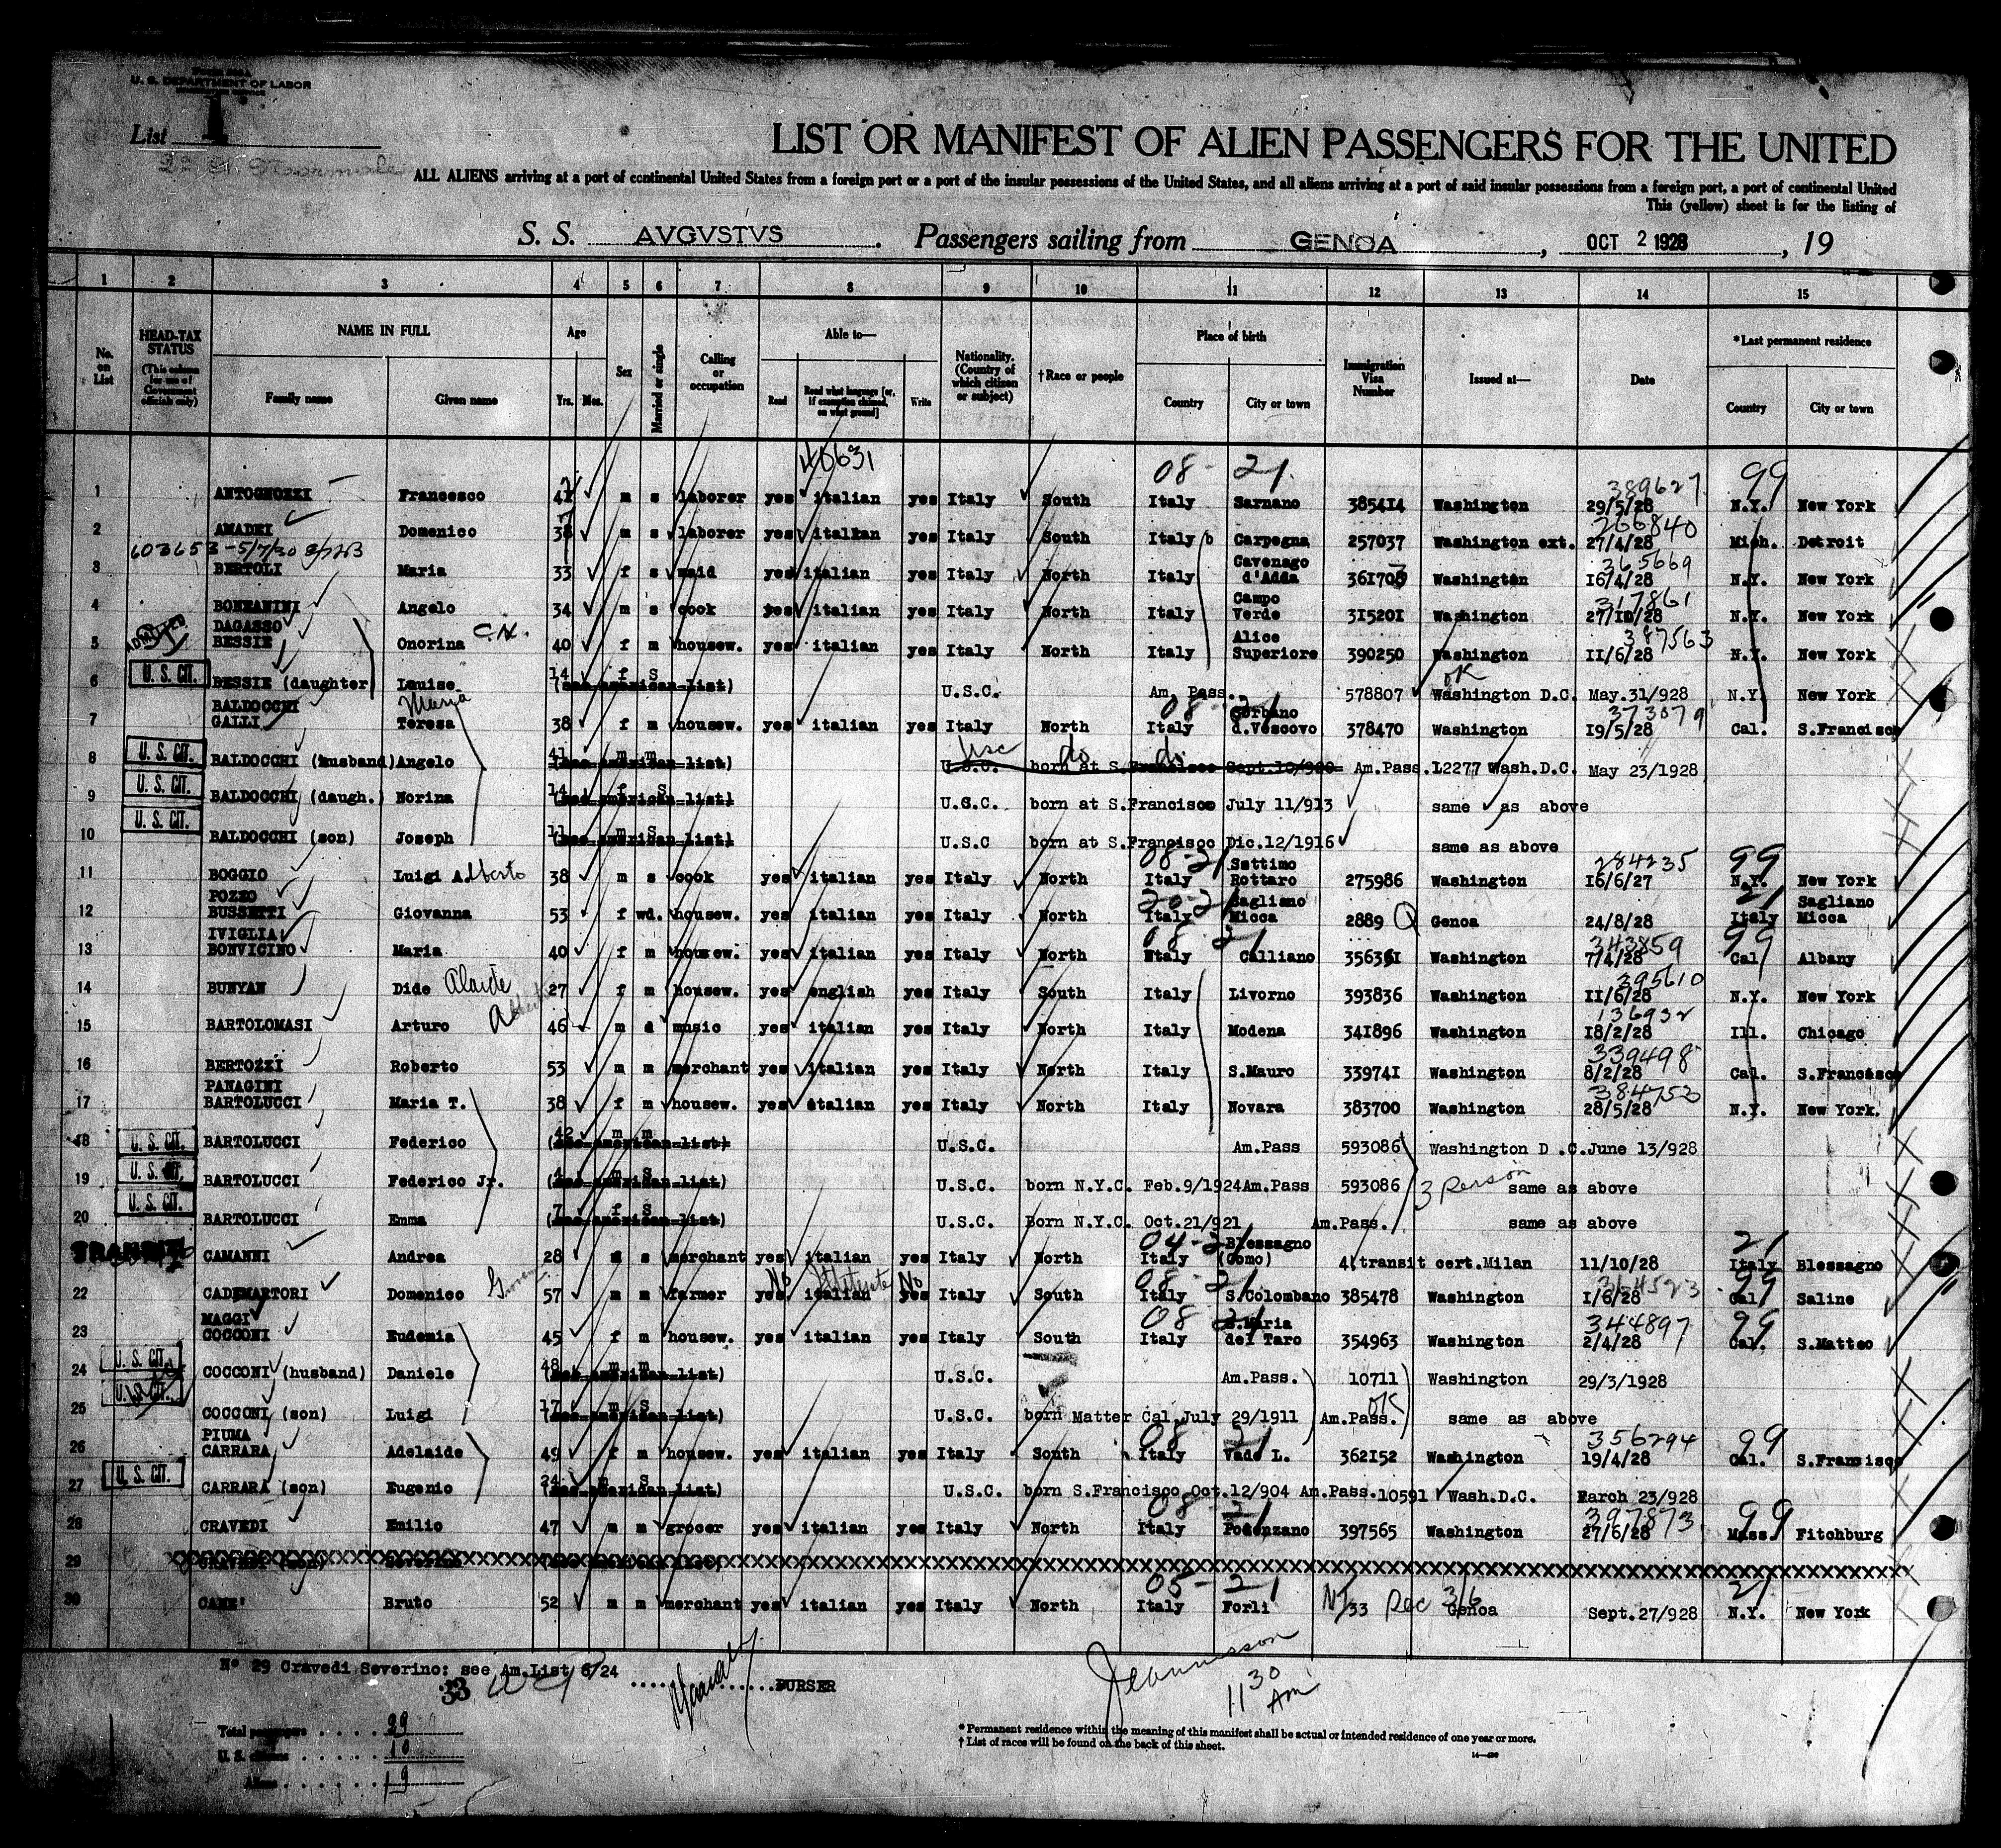 U. S. DEPARTMENT OF LABOR
List 1
LIST OR MANIFEST OF ALIEN PASSENGERS FOR THE UNITED
ALL ALIENS arriving at a port of continental United States from a foreign port or a port of the insular possessions of the United States, and all aliens arriving at a port of said insular possessions from a foreign port, a port of continental United
This (yellow) sheet is for the listing of
S. S. AVGVSTVS. Passengers sailing from GENOA, OCT 2 1928, 19
1 2 3 4 5 6 7 8 9 10 11 12 13 14 15
No. on List
HEAD-TAX STATUS (This column for use of Government officials only)
NAME IN FULL Family name Given name
Age Yrs. Mos.
Sex
Married or single
Calling or occupation
Able to— Read Read what language [or, if exemption claimed, on what ground] Write
Nationality. (Country of which citizen or subject)
†Race or people
Place of birth Country City or town
Immigration Visa Number
Issued at—
Date
*Last permanent residence Country City or town
08-21. 99
1 ANTOGNOZZI Francesco m s laborer yes italian yes Italy South Italy Sarnano 385414 Washington 389627 29/5/28 N.Y. New York
2 AMADEI Domenico 38 m s laborer yes italian yes Italy South Italy Carpegna 257037 Washington ext. 266840 27/4/28 Mich. Detroit
3 BERTOLI Maria 33 f s maid yes italian yes Italy North Italy Cavenago d'Adda 361703 Washington 365669 16/4/28 N.Y. New York
4 BONZANINI Angelo 34 m s cook yes italian yes Italy North Italy Campo Verde 315201 Washington 317861 27/10/28 N.Y. New York
ADMITTED
5 DAGASSO BESSIE Onorina 40 f m housew. yes italian yes Italy North Italy Alice Superiore 390250 Washington 387563 11/6/28 N.Y. New York
U. S. CIT.
6 BESSIE (daughter) Louise 14 f S (see american list) U.S.C. Am. Pass. 578807 OK Washington D.C. May.31/928 N.Y. New York
7 BALDOCCHI GALLI Maria Teresa 38 f m housew. yes italian yes Italy North 08-21 Italy Gorbano d.Vescovo 378470 Washington 373079 19/5/28 Cal. S.Francisco
U. S. CIT.
8 BALDOCCHI (husband) Angelo 41 m m (see american list) U.S.C. usc do do born at S.Francisco Sept.10/900 Am.Pass.L2277 Wash.D.C. May 23/1928
U. S. CIT.
9 BALDOCCHI (daugh.) Norina 14 f S (see american list) U.S.C. born at S.Francisco July 11/913 same as above
U. S. CIT.
10 BALDOCCHI (son) Joseph 11 m S (see american list) U.S.C born at S.Francisco Dic.12/1916 same as above
11 BOGGIO Luigi Alberto 38 m s cook yes italian yes Italy North 08-21 Italy Settimo Rottaro 275986 Washington 284235 16/6/27 99 N.Y. New York
12 POZZO BUSSETTI Giovanna 53 f wd. housew. yes italian yes Italy North 20-21 Italy Sagliano Micca 2889 Q Genoa 24/8/28 21 Italy Sagliano Micca
13 IVIGLIA BONVICINO Maria 40 f m housew. yes italian yes Italy North 08 21 Italy Calliano 356351 Washington 343859 7/4/28 99 Cal Albany
14 BUNYAN Dide Alaide 27 f m housew. yes english yes Italy South Italy Livorno 393836 Washington 395610 11/6/28 N.Y. New York
15 BARTOLOMASI Arturo 46 m d music yes italian yes Italy North Italy Modena 341896 Washington 136932 18/2/28 Ill. Chicago
16 BERTOZZI Roberto 53 m m merchant yes italian yes Italy North Italy S.Mauro 339741 Washington 339498 8/2/28 Cal. S.Francisco
17 PANAGINI BARTOLUCCI Maria T. 38 f m housew. yes italian yes Italy North Italy Novara 383700 Washington 384753 28/5/28 N.Y. New York.
U. S. CIT.
18 BARTOLUCCI Federico 42 m m (see american list) U.S.C. Am.Pass 593086 Washington D.C. June 13/928
U. S. CIT.
19 BARTOLUCCI Federico Jr. 4 m S (see american list) U.S.C. born N.Y.C. Feb.9/1924 Am.Pass 593086 3 Person same as above
U. S. CIT.
20 BARTOLUCCI Emma 7 f S (see american list) U.S.C. Born N.Y.C. Oct.21/921 Am.Pass. same as above
TRANSIT CAMANNI Andrea 28 m s merchant yes italian yes Italy North 04-21 Italy Blessagno (Como) 4 transit cert.Milan 11/10/28 21 Italy Blessagno
22 CADEMARTORI Domenico 57 m m farmer yes No italian yes No Italy South 08-21 Italy S.Colombano 385478 Washington 364523 1/6/28 99 Cal Saline
23 MAGGI COCCONI Eudemia 45 f m housew. yes italian yes Italy South 08 21 Italy S.Maria del Taro 354963 Washington 344897 2/4/28 99 Cal. S.Matteo
U. S. CIT.
24 COCCONI (husband) Daniele 48 m m (see american list) U.S.C. Am.Pass. 10711 Washington 29/3/1928
U. S. CIT.
25 COCCONI (son) Luigi 17 m S (see american list) U.S.C. born Matter Cal.July 29/1911 Am.Pass. OK same as above
26 PIUMA CARRARA Adelaide 49 f m housew. yes italian yes Italy South 08 21 Italy Vado L. 362152 Washington 356294 19/4/28 99 Cal. S.Francisco
U. S. CIT.
27 CARRARA (son) Eugenio 24 m S (see american list) U.S.C. born S.Francisco Oct.12/904 Am.Pass.10591 Wash.D.C. March 23/928
28 CRAVEDI Emilio 47 m m grocer yes italian yes Italy North 08-21 Italy Podenzano 397565 Washington 397873 27/6/28 99 Mass. Fitchburg
29 CRAVEDI (son) Severino (see american list)
30 CANE' Bruto 52 m m merchant yes italian yes Italy North 05-21 Italy Forli 33 Dec 316 Genoa Sept.27/928 21 N.Y. New York
N° 29 Cravedi Severino: see Am.List 6/24
33 PURSER
11 30 Am
Total passengers 29
U. S. citizens 10
Aliens 19
* Permanent residence within the meaning of this manifest shall be actual or intended residence of one year or more.
† List of races will be found on the back of this sheet.